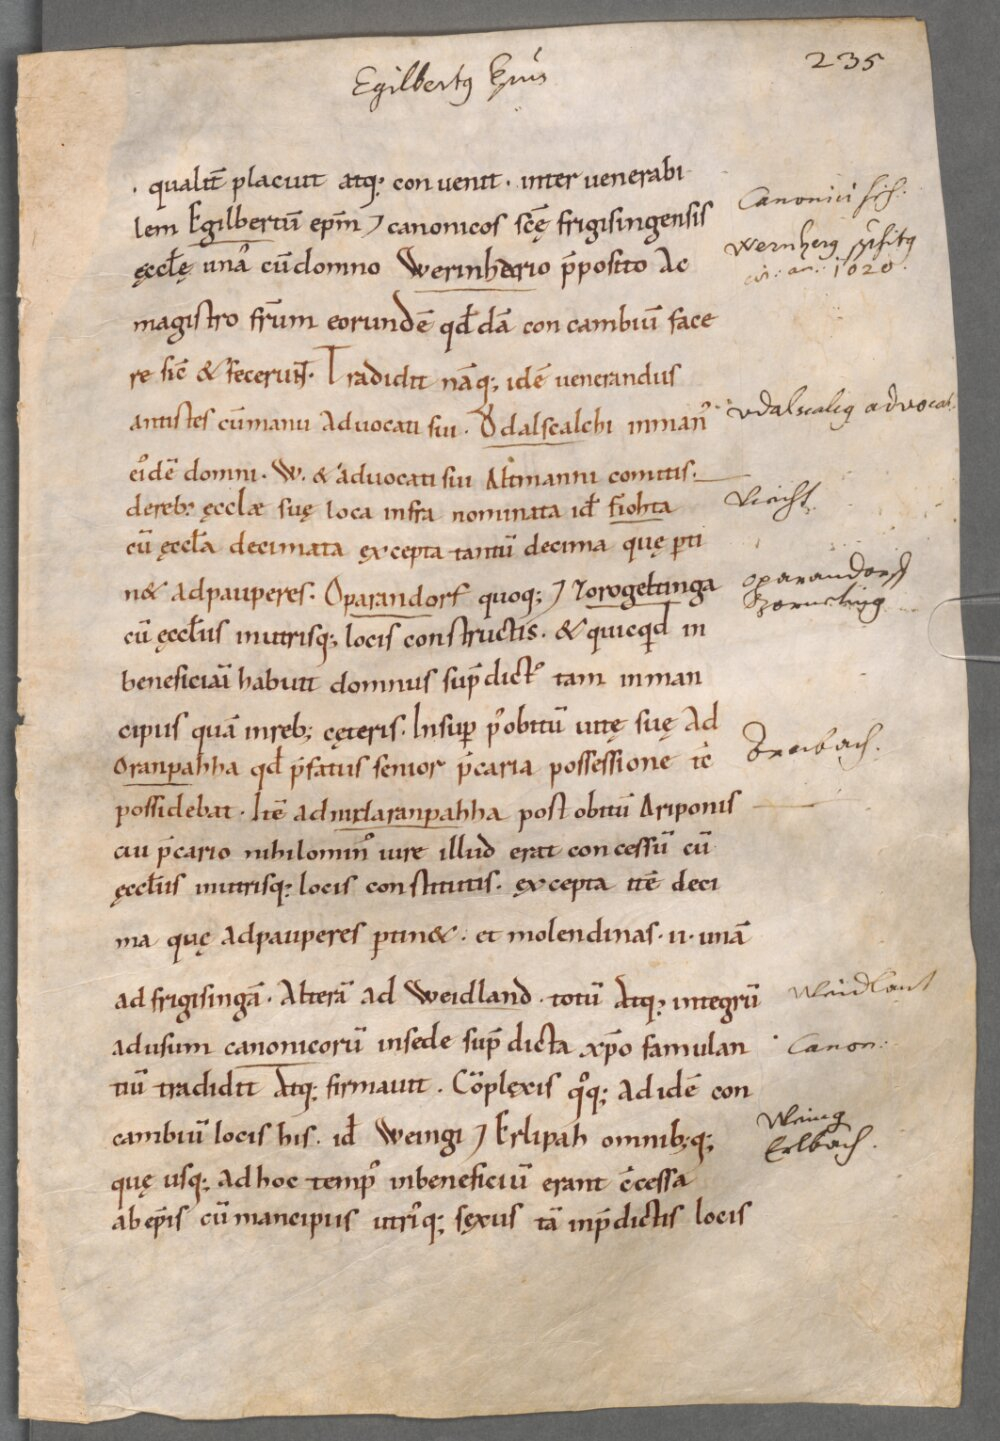 235
Egilbertꝰ Epūs
· qualiť placuit atq; conuenit · inter uenerabi
lem Egilbertū epīm ⁊ canonicos scę̄ frigisingensis
ęccłę unā cū domno Werinherio p̄posito Ac
magistro fr̄um eorundē qđdā concambiū face
re sic̄ & fecerunt · Tradidit nāq; idē uenerandus
antistes cū manu Aduocati sui · Ǒdalscalchi in manꝰ
eiꝰdē domni · W. & aduocati sui Altmanni comitis ·
de reb; ęcclæ suę loca infra nominata id̄ fiohta
cū ęccła decimata excepta tantū decima quę p̱ti
n& ad pauperes · Oparandorf quoq; ⁊ Zorogeltinga
cū ęccłiis in utrisq; locis constructis · & quicqđ in
beneficiū habuit domnus sup̄dictꝰ tam in man
cipiis quā in reb; cęteris · Insup̱ pꝰ obitū uitę suę Ad
Oranpahha qđ p̄fatus senior p̄caria possessione tc̄
possidebat · Itē ad nidaranpahha post obitū Ariponis
cui p̄cario nihilominꝰ iure illud erat concessū cū
ęccłiis in utrisq; locis constitutis · excepta itē deci
ma quę Ad pauperes p̱tin& · et molendinas · ii · unā
ad frigisingā · Alterā ad Weidland · totū Atq; integrū
ad usum canonicorū in sede sup̄dicta xp̄o famulan
tiū tradidit Atq; firmauit · Cōplexis qͦq; Ad idē con
cambiū locis his · id̄ Weingi ⁊ Erlipah omnib; q;
quę usq; ad hoc tempꝰ in beneficiū erant c̄cessa
ab ep̄is cū mancipiis utriꝰq; sexus tā in p̄dictis locis
Canonici fris:
Wernherꝰ p̄positꝰ
cir: an: 1020.
Vdalscalcꝰ advocat.
Viecht.
Oparandorff
Zornelting
Ornbach.
Weidlant
Canon:
Weing
Erlbach.